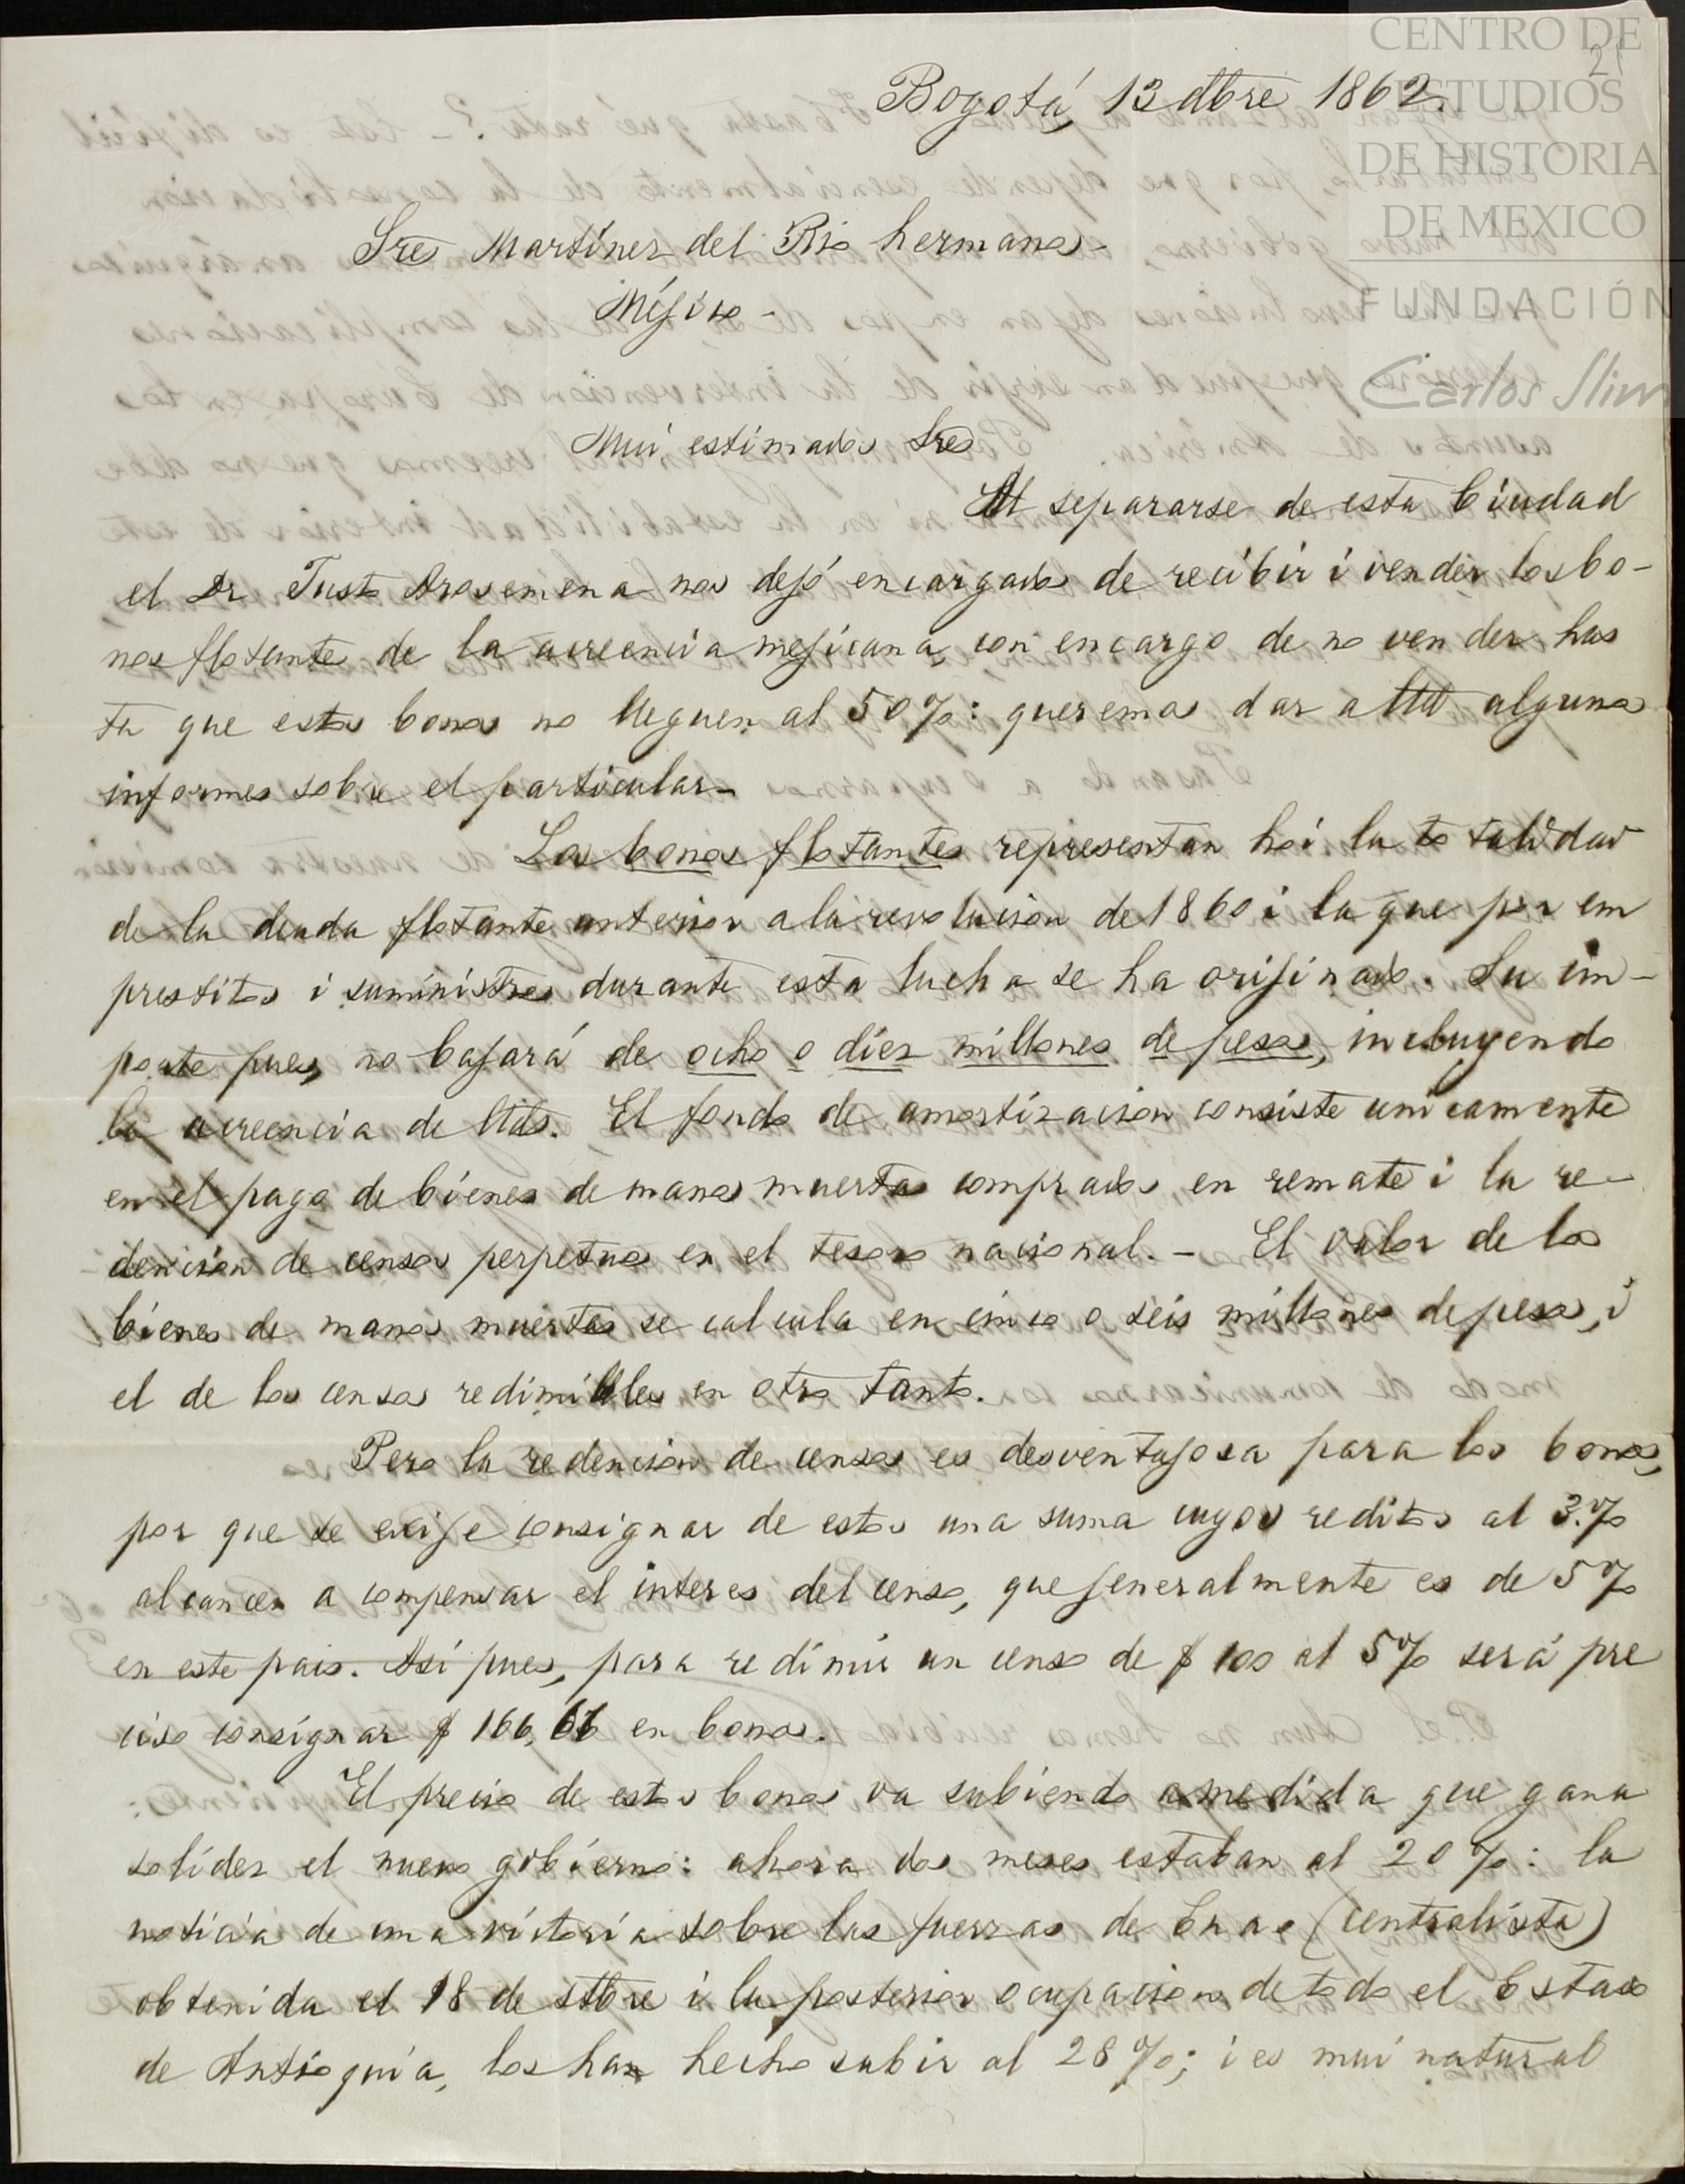 CENTRO DE
ESTUDIOS
DE HISTORIA
DE MEXICO
FUNDACIÓN
Carlos Slim
21
Bogotá, 13 dbre 1862.
Sres Martínez del Rio hermanos-
Méjico-
Mui estimados Sres
Al separarse de esta Ciudad
el Dr Justo Arosemena nos dejó encargados de recibir i vender los bo-
nos flotantes de la acreencia mejicana, con encargo de no vender has
ta que estos bonos no lleguen al 50%: queremos dar a Uds algunos
informes sobre el particular-
Los bonos flotantes representan hoi la totalidad
de la deuda flotante anterior a la revolucion de 1860 i la que por em
prestitos i suministros durante esta lucha se ha orijinado. Su im-
porte pues, no bajará de ocho o diez millones de pesos, incluyendo
la acreencia de Uds. El fondo de amortizacion consiste unicamente
en el pago de bienes de manos muertas comprados en remate i la re-
dencion de censos perpetuos en el tesoro nacional.- El valor de los
bienes de manos muertas se calcula en cinco o seis millones de pesos, i
el de los censos redimibles en otro tanto.
Pero la redencion de censos es desventajosa para los bonos,
por que se exije consignar de estos una suma cuyos reditos al 3.%
alcancen a compensar el interes del censo, que jeneralmente es de 5%
en este pais. Asi pues, para redimir un censo de $ 100 al 5% será pre
ciso consignar $ 166,66 en bonos.
El precio de estos bonos va subiendo a medida que gana
solidez el nuevo gobierno: ahora dos meses estaban al 20%: la
noticia de una victoria sobre las fuerzas de Enao (centralista)
obtenida el 18 de stbre i la posterior ocupacion de todo el Estado
de Antioquia, los han hecho subir al 28%; i es mui natural